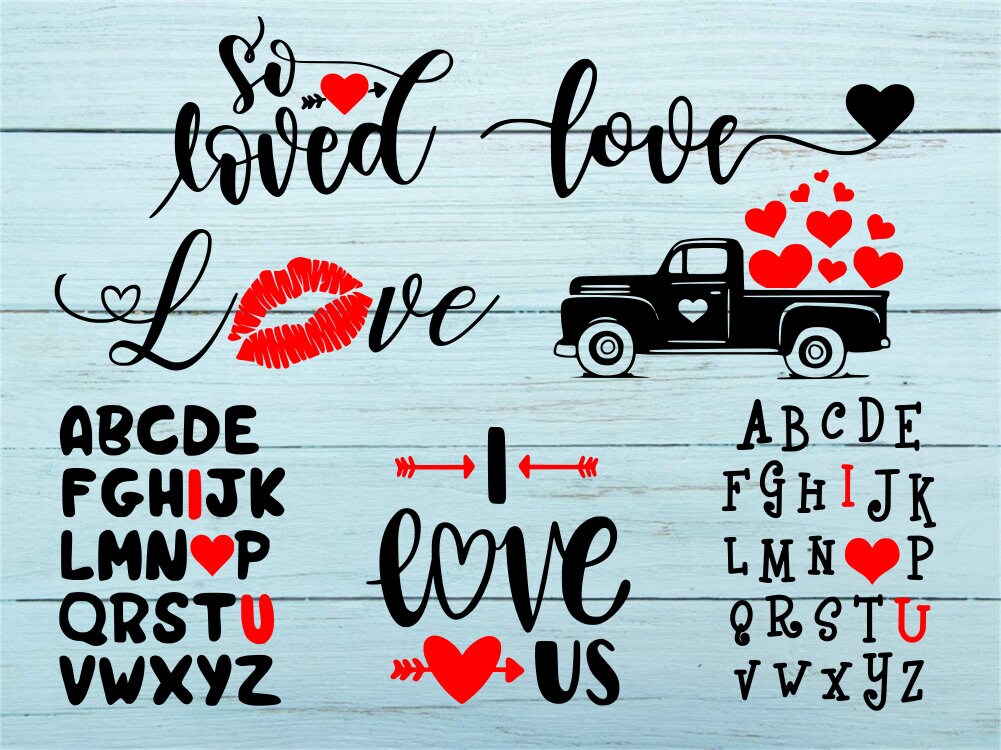 So
loved
love
Love
ABCDE
FGHIJK
LMN❤P
QRSTU
VWXYZ
I
love
US
ABCDE
FGHIJK
LMN❤P
QRSTU
VWXYZ